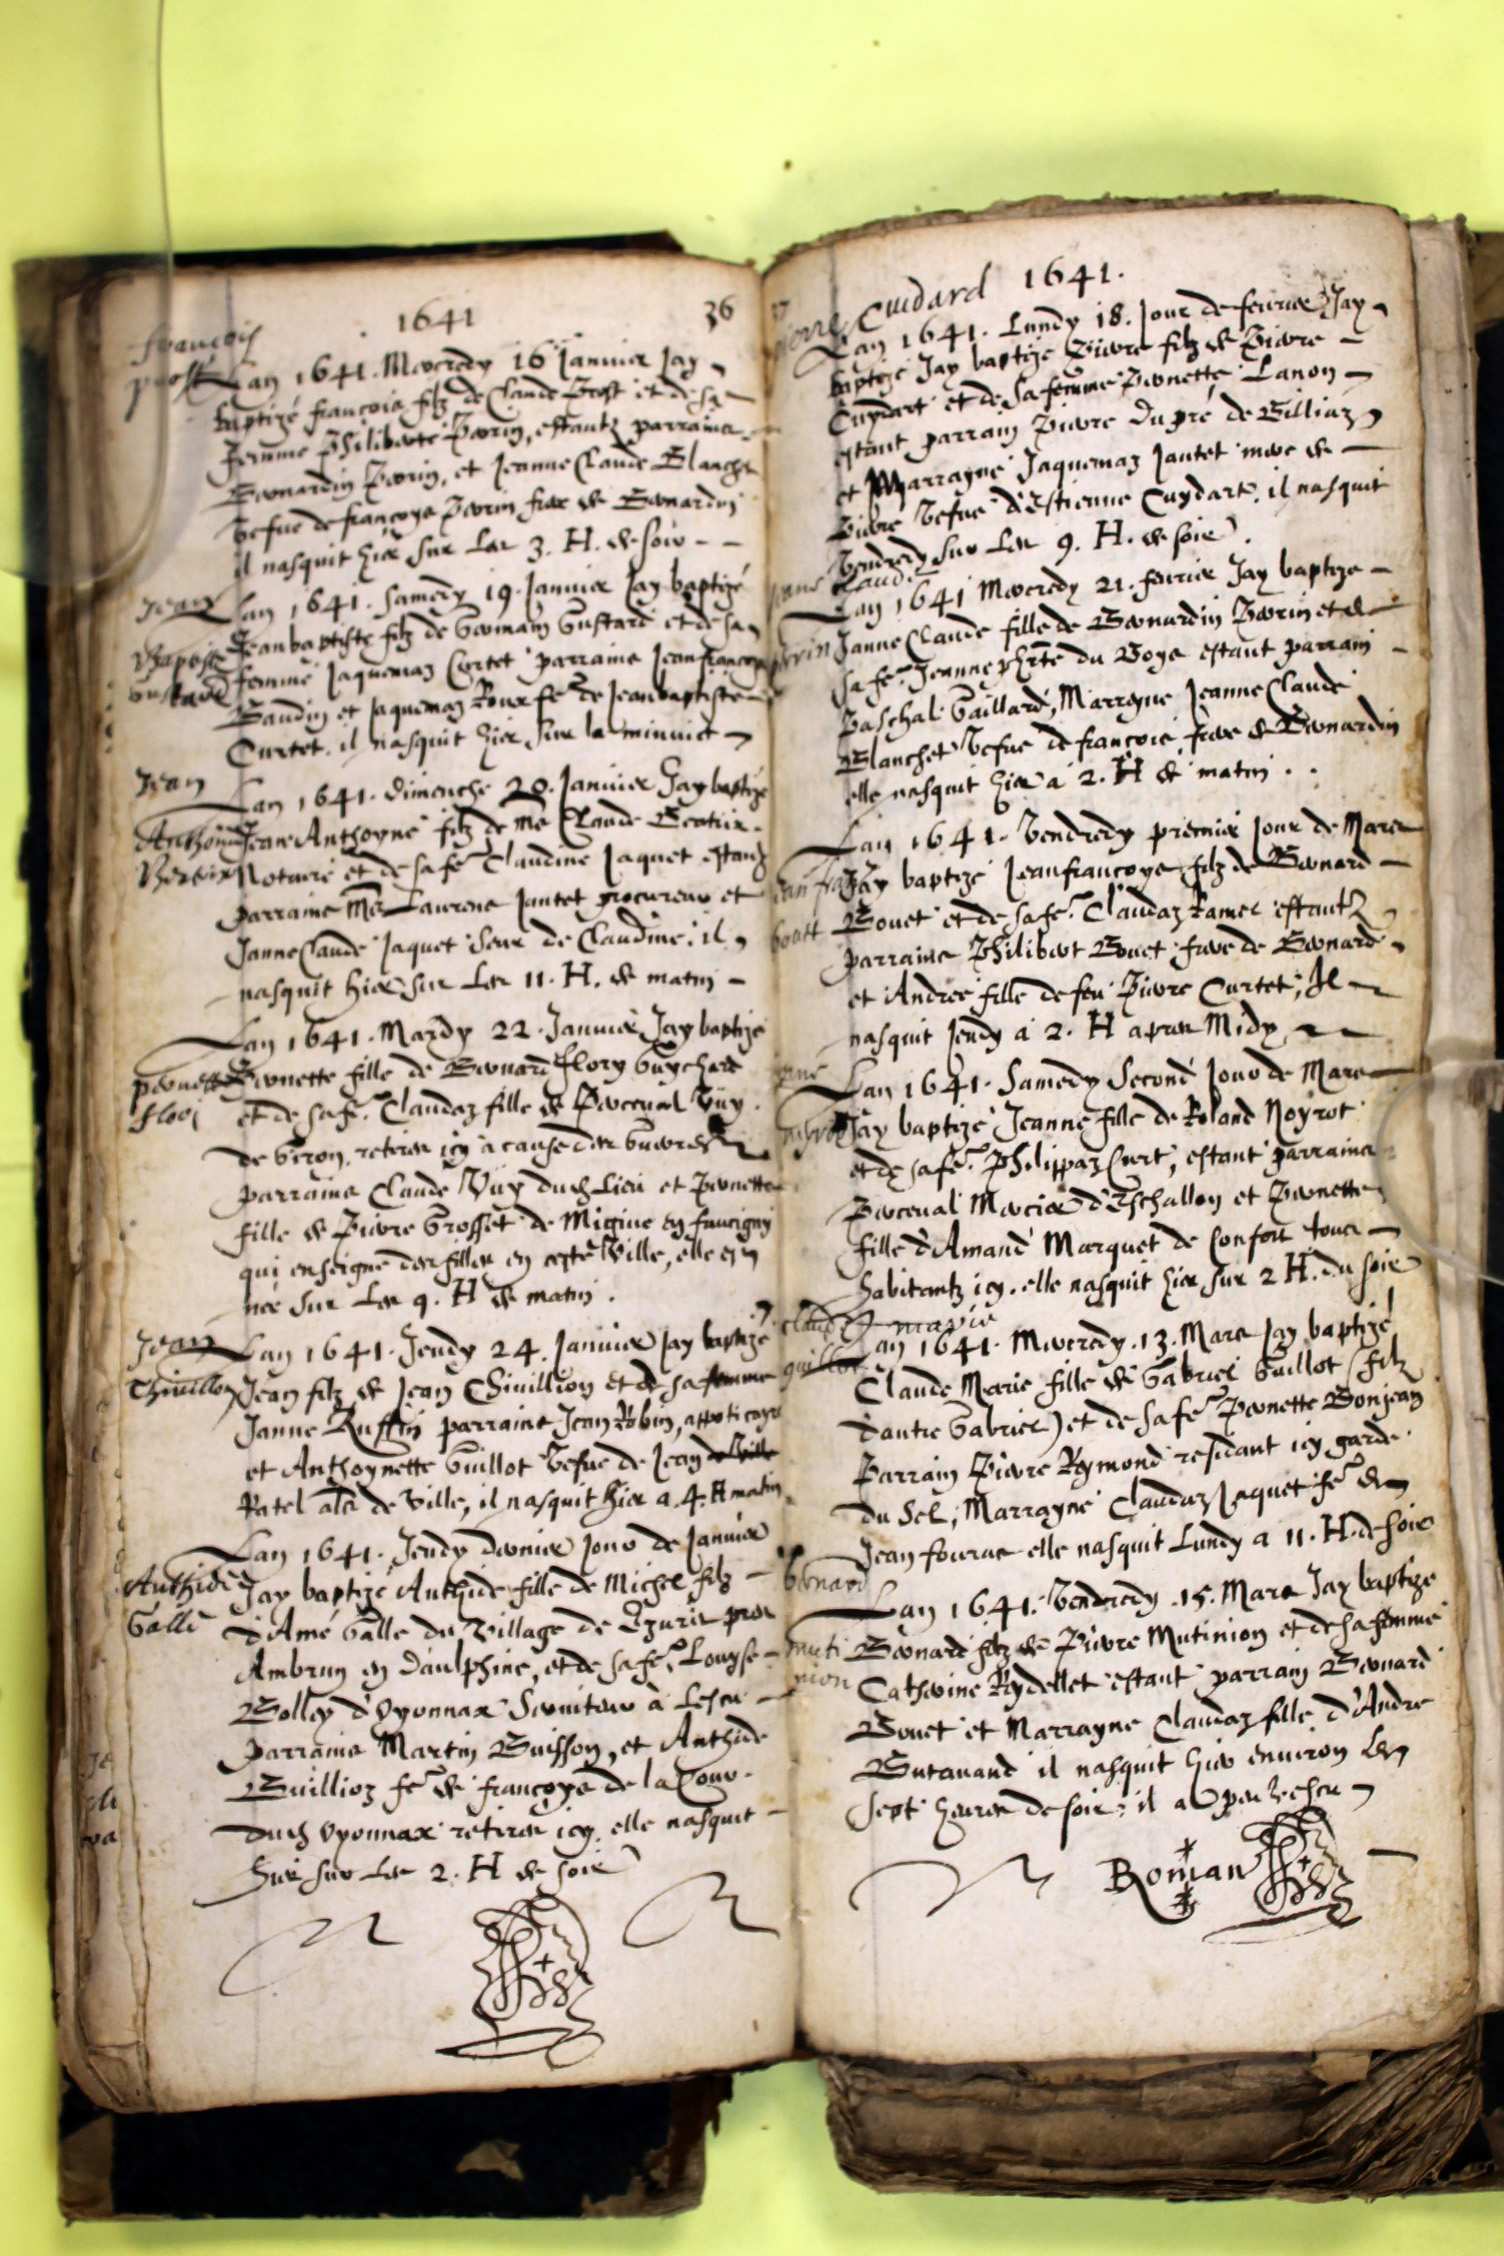 1641
36
francois
prost
Lan 1641. Mercredy 16 Janvier Jay
baptizé françois filz de Claude Prost et de sa
femme Philiberte Perrin, estantz parrains
Bernardin Perrin, et Jeanne Claude Blanchet
Vefue de françoys Perrin frere de Bernardin
il nasquit hier sur les 3. H. de soir
Jean
Baptiste
Gustard
Lan 1641. Samedy 19. Janvier Jay baptizé
Jeanbaptiste filz de Germain Gustard et de sa
femme Jaquemaz Curtet parrains Jeanfrançoys
Baudin et Jaquemaz Roux fe. de Jeanbaptiste
Curtet. il nasquit hier sur la minuict
Jean
Anthoine
Bereix
Lan 1641. dimenche 20. Janvier Jay baptizé
Jean Anthoyne filz de me Claude
Notaire et de sa fe. Claudine Jaquet estantz
parrains me Laurens Jantet procureur et
Janne Claude Jaquet seur de Claudine. il
nasquit hier sur les 11. H. de matin
pernette
flori
Lan 1641. Mardy 22. Janvier Jay baptizé
Pernette fille de Bernard flory Guychard
et de sa fe. Claudaz fille de Perceval Vuy
de retirez icy a cause des guerres
parrains Claude Vuy dud. Lieu et Pernette
fille de Pierre Grosset de en faucigny
qui enseigne des filles en ceste Ville, elle est
née sur les 9. H de matin.
Jean
Chivillion
Lan 1641. Jeudy 24. Janvier Jay baptizé
Jean filz de Jean Chivillion et de sa femme
Janne Ruffin parrains Jean Robin, appoticayre
et Anthoynette Guillot Vefue de Jean
Ratel de Ville, il nasquit hier a 4. H matin
Anthide
Galle
Lan 1641. Jeudy dernier jour de Janvier
Jay baptizé Anthide fille de Michel filz
d'Amé Galle du Village de pres
Ambrun en daulphine, et de sa fe. Louyse
Bolley d'Oyonnax
parrains Martin Buisson, et Anthide
Guillioz fe. de françoys de la Cour
dud. Oyonnax retirez icy. elle nasquit
hier sur les 2. H de soir
37
pierre Cuidard 1641.
Lan 1641. Lundy 18. jour de feurier Jay
baptizé Jay baptizé Pierre filz de Pierre
Cuydart et de sa femme Pernette Lanon
estant parrain Pierre Dupré de Billiaz
et Marrayne Jaquemaz Jantet mere de
Pierre Vefue d'Estienne Cuydart. il nasquit
Vendredy sur les 9. H. de soir.
Janne Claude
perrin
Lan 1641 Mercredy 21. feurier Jay baptizé
Janne Claude fille de Bernardin Perrin et de
sa fe. Jeanne du Boys estant parrain
Paschal Gaillard, Marrayne Jeanne Claude
Blanchet Vefue de françois frere de Bernardin
elle nasquit hier a 2. H de matin..
Jean fran
bouet
Lan 1641. Vendredy premier jour de Mars
Jay baptizé Jeanfrançoys filz de Bernard
Bouet et de sa fe. Claudaz Ramel estantz
parrains Philibert Bouet frere de Bernard
et Andree fille de feu Pierre Curtet, Il
nasquit Jeudy a 2. H apres Midy
Janne
Noyrot
Lan 1641. Samedy Second jour de Mars
Jay baptizé Jeanne fille de Roland Noyrot
et de sa fe. Philippaz Curt, estant parrains
Perceval Mercier d'Eschallon et Pernette
fille d'Amand Marquet de Confort tous
habitantz icy. elle nasquit hier sur 2 H. du soir
Claude marie
guillot
Lan 1641. Mercredy. 13. Mars Jay baptizé
Claude Marie fille de Gabriel Guillot (filz
d'autre Gabriel) et de sa fe. Pernette Bonjean
Parrain Pierre Reymond residant icy garde
du Sel, Marrayne Claudaz Jaquet fe. de
Jean fourne elle nasquit Lundy a 11. H. de soir
bernard
muti
nion
Lan 1641. Vendredy. 15. Mars Jay baptizé
Bernard filz de Pierre Mutinion et de sa femme
Catherine Reydellet estant parrain Bernard
Bouet et Marrayne Claudaz fille d'Andre
Butavand il nasquit hier environ les
sept heures de soir, il a peu vescu
Roman